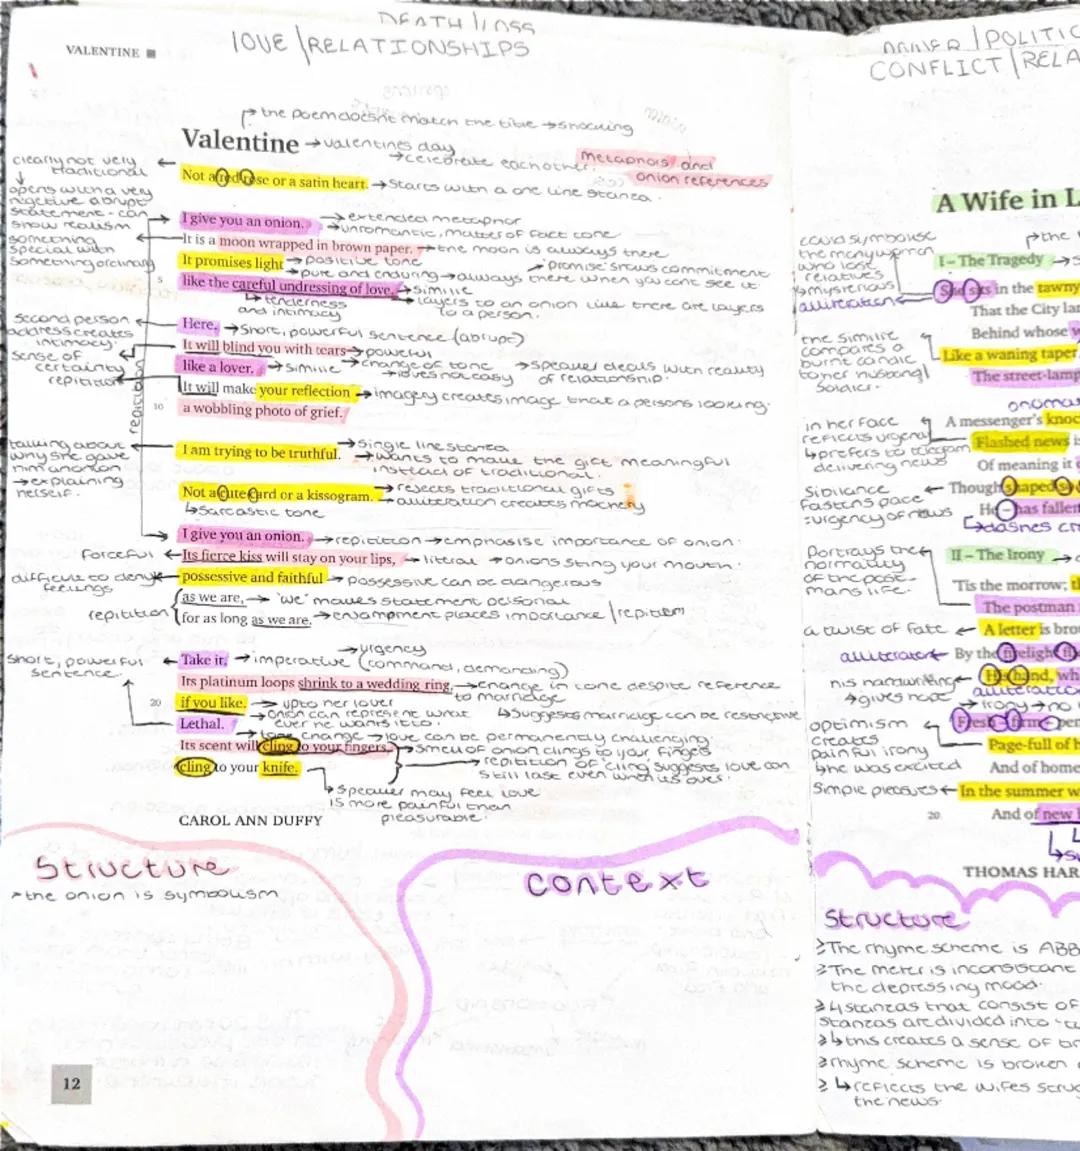 DEATH / LOSS
LOVE / RELATIONSHIPS
VALENTINE
↱ the poem doesn't match the title → shocking
Valentine → valentines day
→ celebrate each other.
Metaphors and
onion references
clearly not very
traditional
↓
opens with a very
negetive abrupt
statement - can
show realism
something
special with
something ordinary
Not a red rose or a satin heart. → starts with a one line stanza.
I give you an onion. → extended metaphor
→ unromantic, matter of fact tone
It is a moon wrapped in brown paper. → the moon is always there
It promises light → positive tone
→ pure and enduring → always there when you cant see it.
→ promise shows commitment
5
like the careful undressing of love. → simile
↳ tenderness
and intimacy
→ layers to an onion like there are layers
to a person.
second person
address creates
intimacy.
Here. → short, powerful sentence (abrupt)
sense of
certainty
repitition
It will blind you with tears → powerful
like a lover. → simile → change of tone
→ love's not easy
→ speaker deals with reality
of relationship.
It will make your reflection → imagery creates image that a persons looking.
10
a wobbling photo of grief.
repitition
talking about
why she gave
him an onion
→ explaining
herself.
I am trying to be truthful. → single line stanza
→ wants to make the gift meaningful
instead of traditional.
Not a cute card or a kissogram. → rejects traditional gifts
→ alliteration creates mockery
↳ sarcastic tone
I give you an onion. → repitition → emphasise importance of onion.
forceful ← Its fierce kiss will stay on your lips, → literal → onions sting your mouth.
difficult to deny
feelings
possessive and faithful → possessive can be dangerous
as we are, → 'we' makes statement personal
repitition
for as long as we are. → enjambment places importance / repitition
short, powerful
sentence.
Take it. → imperative (command, demanding)
→ urgency
Its platinum loops shrink to a wedding ring, → change in tone despite reference
to marriage
20
if you like. → up to her lover
→ onion can represent what
ever he wants it to.
↳ suggests marriage can be restrictive
Lethal.
→ tone change → love can be permanently challenging.
Its scent will cling to your fingers, → smell of onion clings to your fingers
→ repitition of 'cling' suggests love can
still last even when its over.
cling to your knife.
↳ speaker may feel love
is more painful than
pleasurable.
CAROL ANN DUFFY
Structure
➤ the onion is symbolism
context
12
CONFLICT / RELA
A Wife in L
could symbolise
the many women
who lost
relatives
↳ mysterious
alliteration
↱ the
I – The Tragedy →
She sits in the tawny
That the City lan
Behind whose w
the simile
compares a
burnt candle
to her husband /
soldier.
Like a waning taper
The street-lamp
onoma
in her face
reflects urgency
↳ prefers to telegram
delivering news
A messenger's knoc
Flashed news i
Of meaning it
Sibilance
fastens pace
: urgency of news
Though shaped s
He – has fallen
↳ dashes cr
Portrays the
normality
of the post-
mans life.
II – The Irony →
'Tis the morrow; t
The postman
a twist of fate ← A letter is bro
alliteration ← By the firelight fl
his handwriting
↳ gives hope
His hand, wh
alliteration
→ irony → no
optimism
creates
painful irony
↳ he was excited
Fresh – firm – pen
Page-full of h
And of home
Simple pleasures ← In the summer w
20
And of new l
THOMAS HAR
Structure
➤ The rhyme scheme is ABB
➤ The meter is inconsistant
the depressing mood.
➤ 4 stanzas that consist of
stanzas are divided into
➤ ↳ this creates a sense of
➤ rhyme scheme is broken
➤ ↳ reflects the wifes stru
the news.